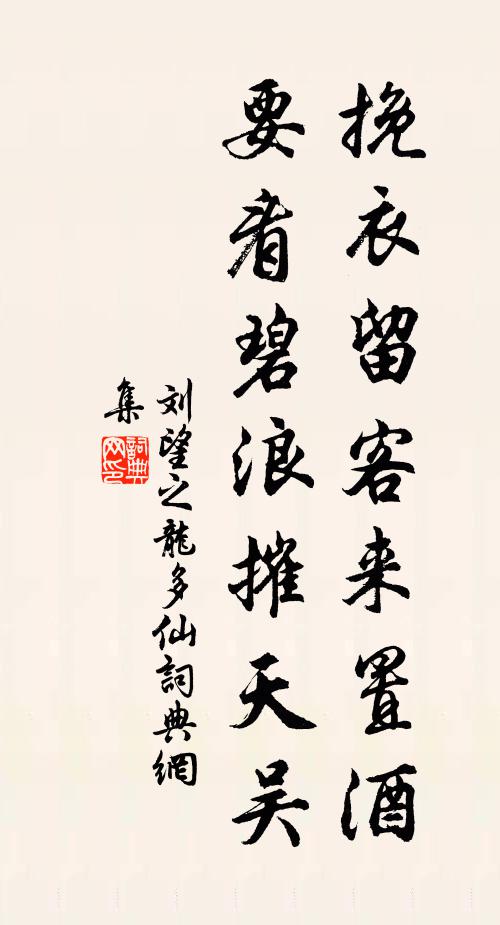 挽衣留客来置酒
要看碧浪摧天吴
刘望之龍多仙詞典網
集
詞典網印